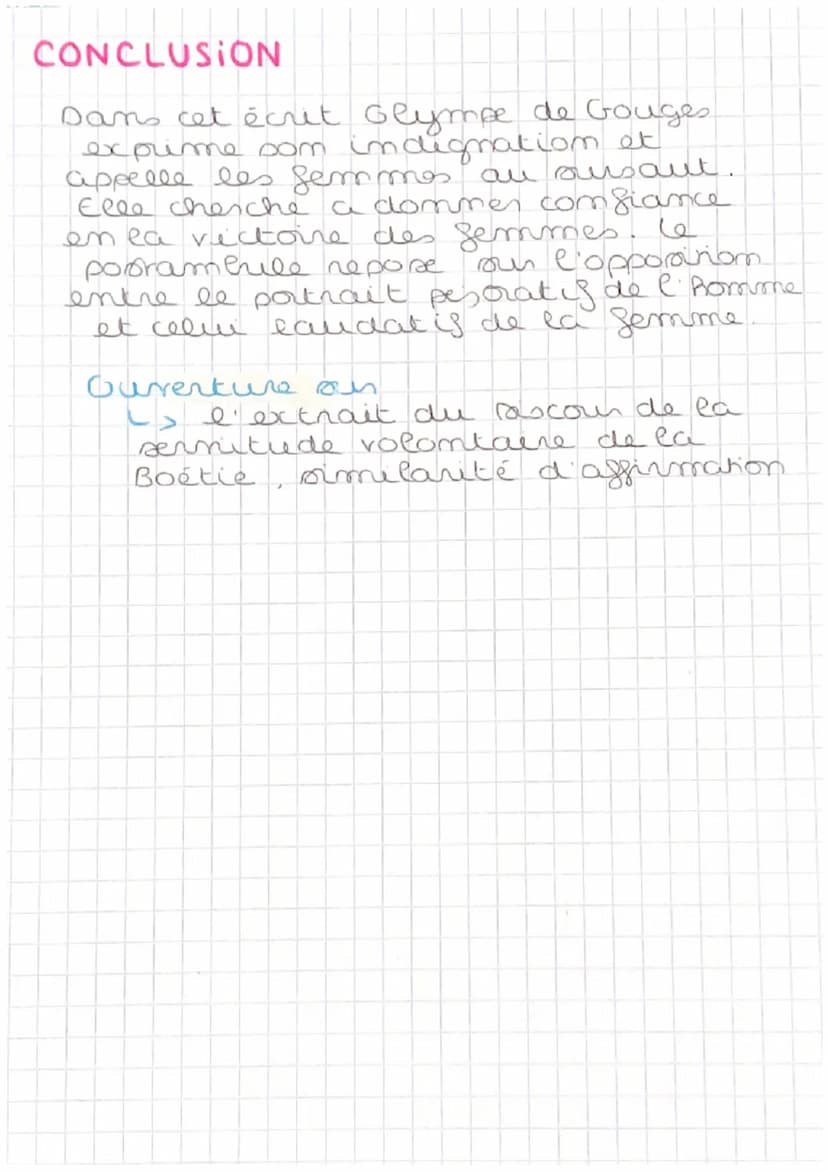 CONCLUSION
Dans cet écrit Olympe de Gouges
exprime son indignation et
appelle les femmes au sursaut.
Elle cherche a donner confiance
en la victoire des femmes. Le
postambule repose sur l'opposition
entre le portrait pejoratif de l'Homme
et celui laudatif de la femme.
Ouverture sur
↳ l'extrait du discour de la
servitude volontaire de la
Boétie, similarité d'affirmation